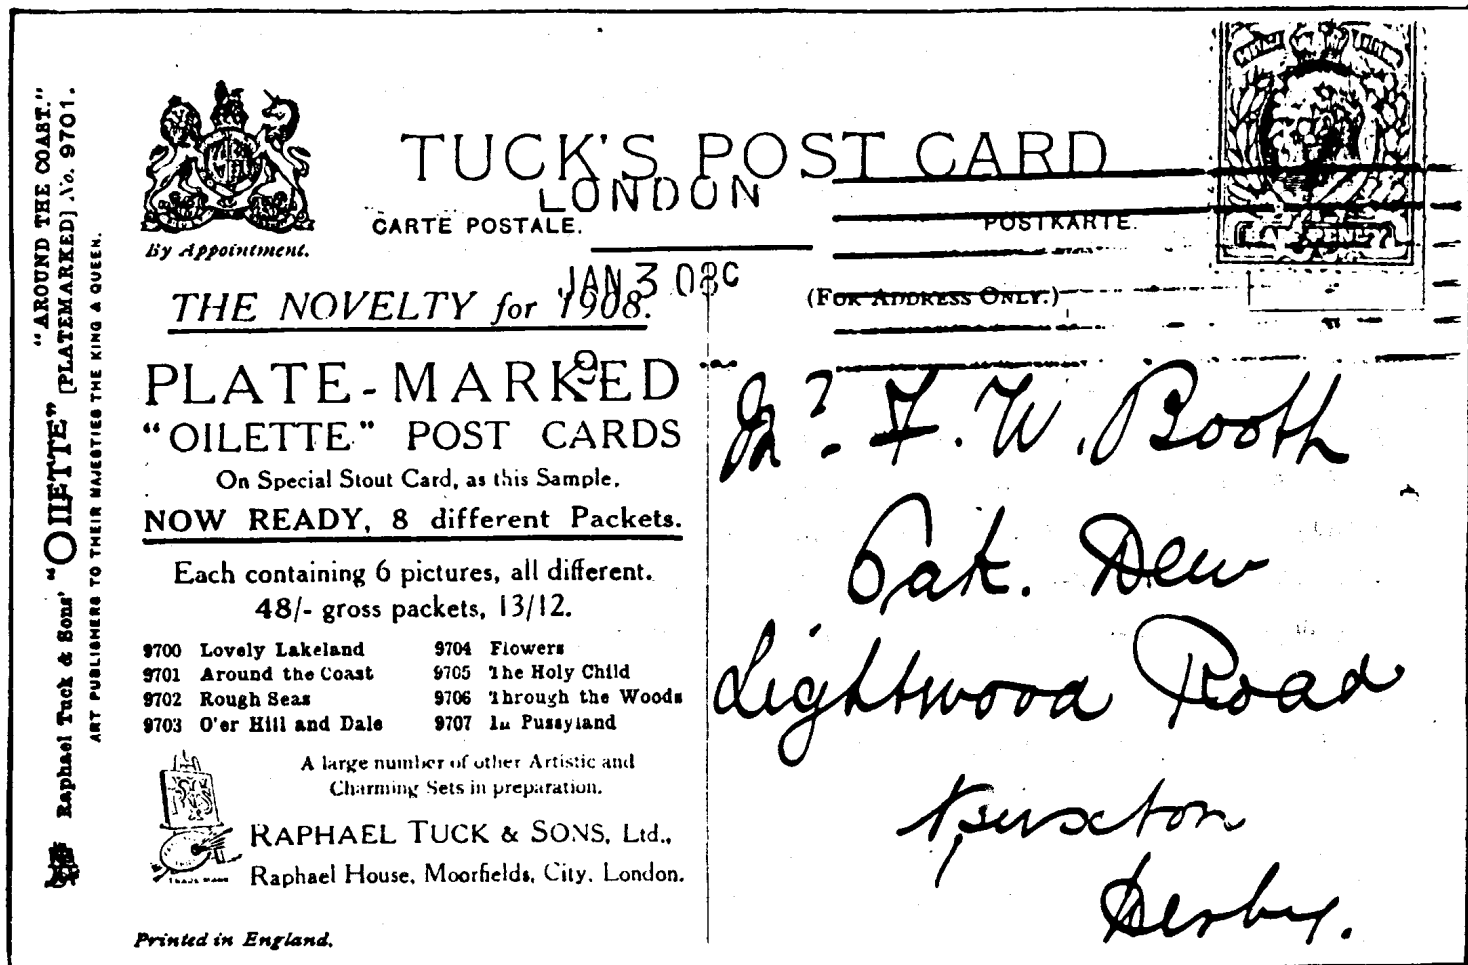 "AROUND THE COAST."
Raphael Tuck & Sons' "OILETTE" [PLATEMARKED] No. 9701.
ART PUBLISHERS TO THEIR MAJESTIES THE KING & QUEEN.
By Appointment.
TUCK'S POST CARD
LONDON
CARTE POSTALE. POSTKARTE.
JAN 3 08 C
(FOR ADDRESS ONLY.)
THE NOVELTY for 1908.
9
PLATE-MARKED
"OILETTE" POST CARDS
On Special Stout Card, as this Sample.
NOW READY, 8 different Packets.
Each containing 6 pictures, all different.
48/- gross packets, 13/12.
9700 Lovely Lakeland 9704 Flowers
9701 Around the Coast 9705 The Holy Child
9702 Rough Seas 9706 Through the Woods
9703 O'er Hill and Dale 9707 In Pussyland
A large number of other Artistic and
Charming Sets in preparation.
RAPHAEL TUCK & SONS, Ltd.,
Raphael House, Moorfields, City, London.
Printed in England.
Mr. F. W. Booth
Oak. Dew
Lightwood Road
Buxton
Derby.